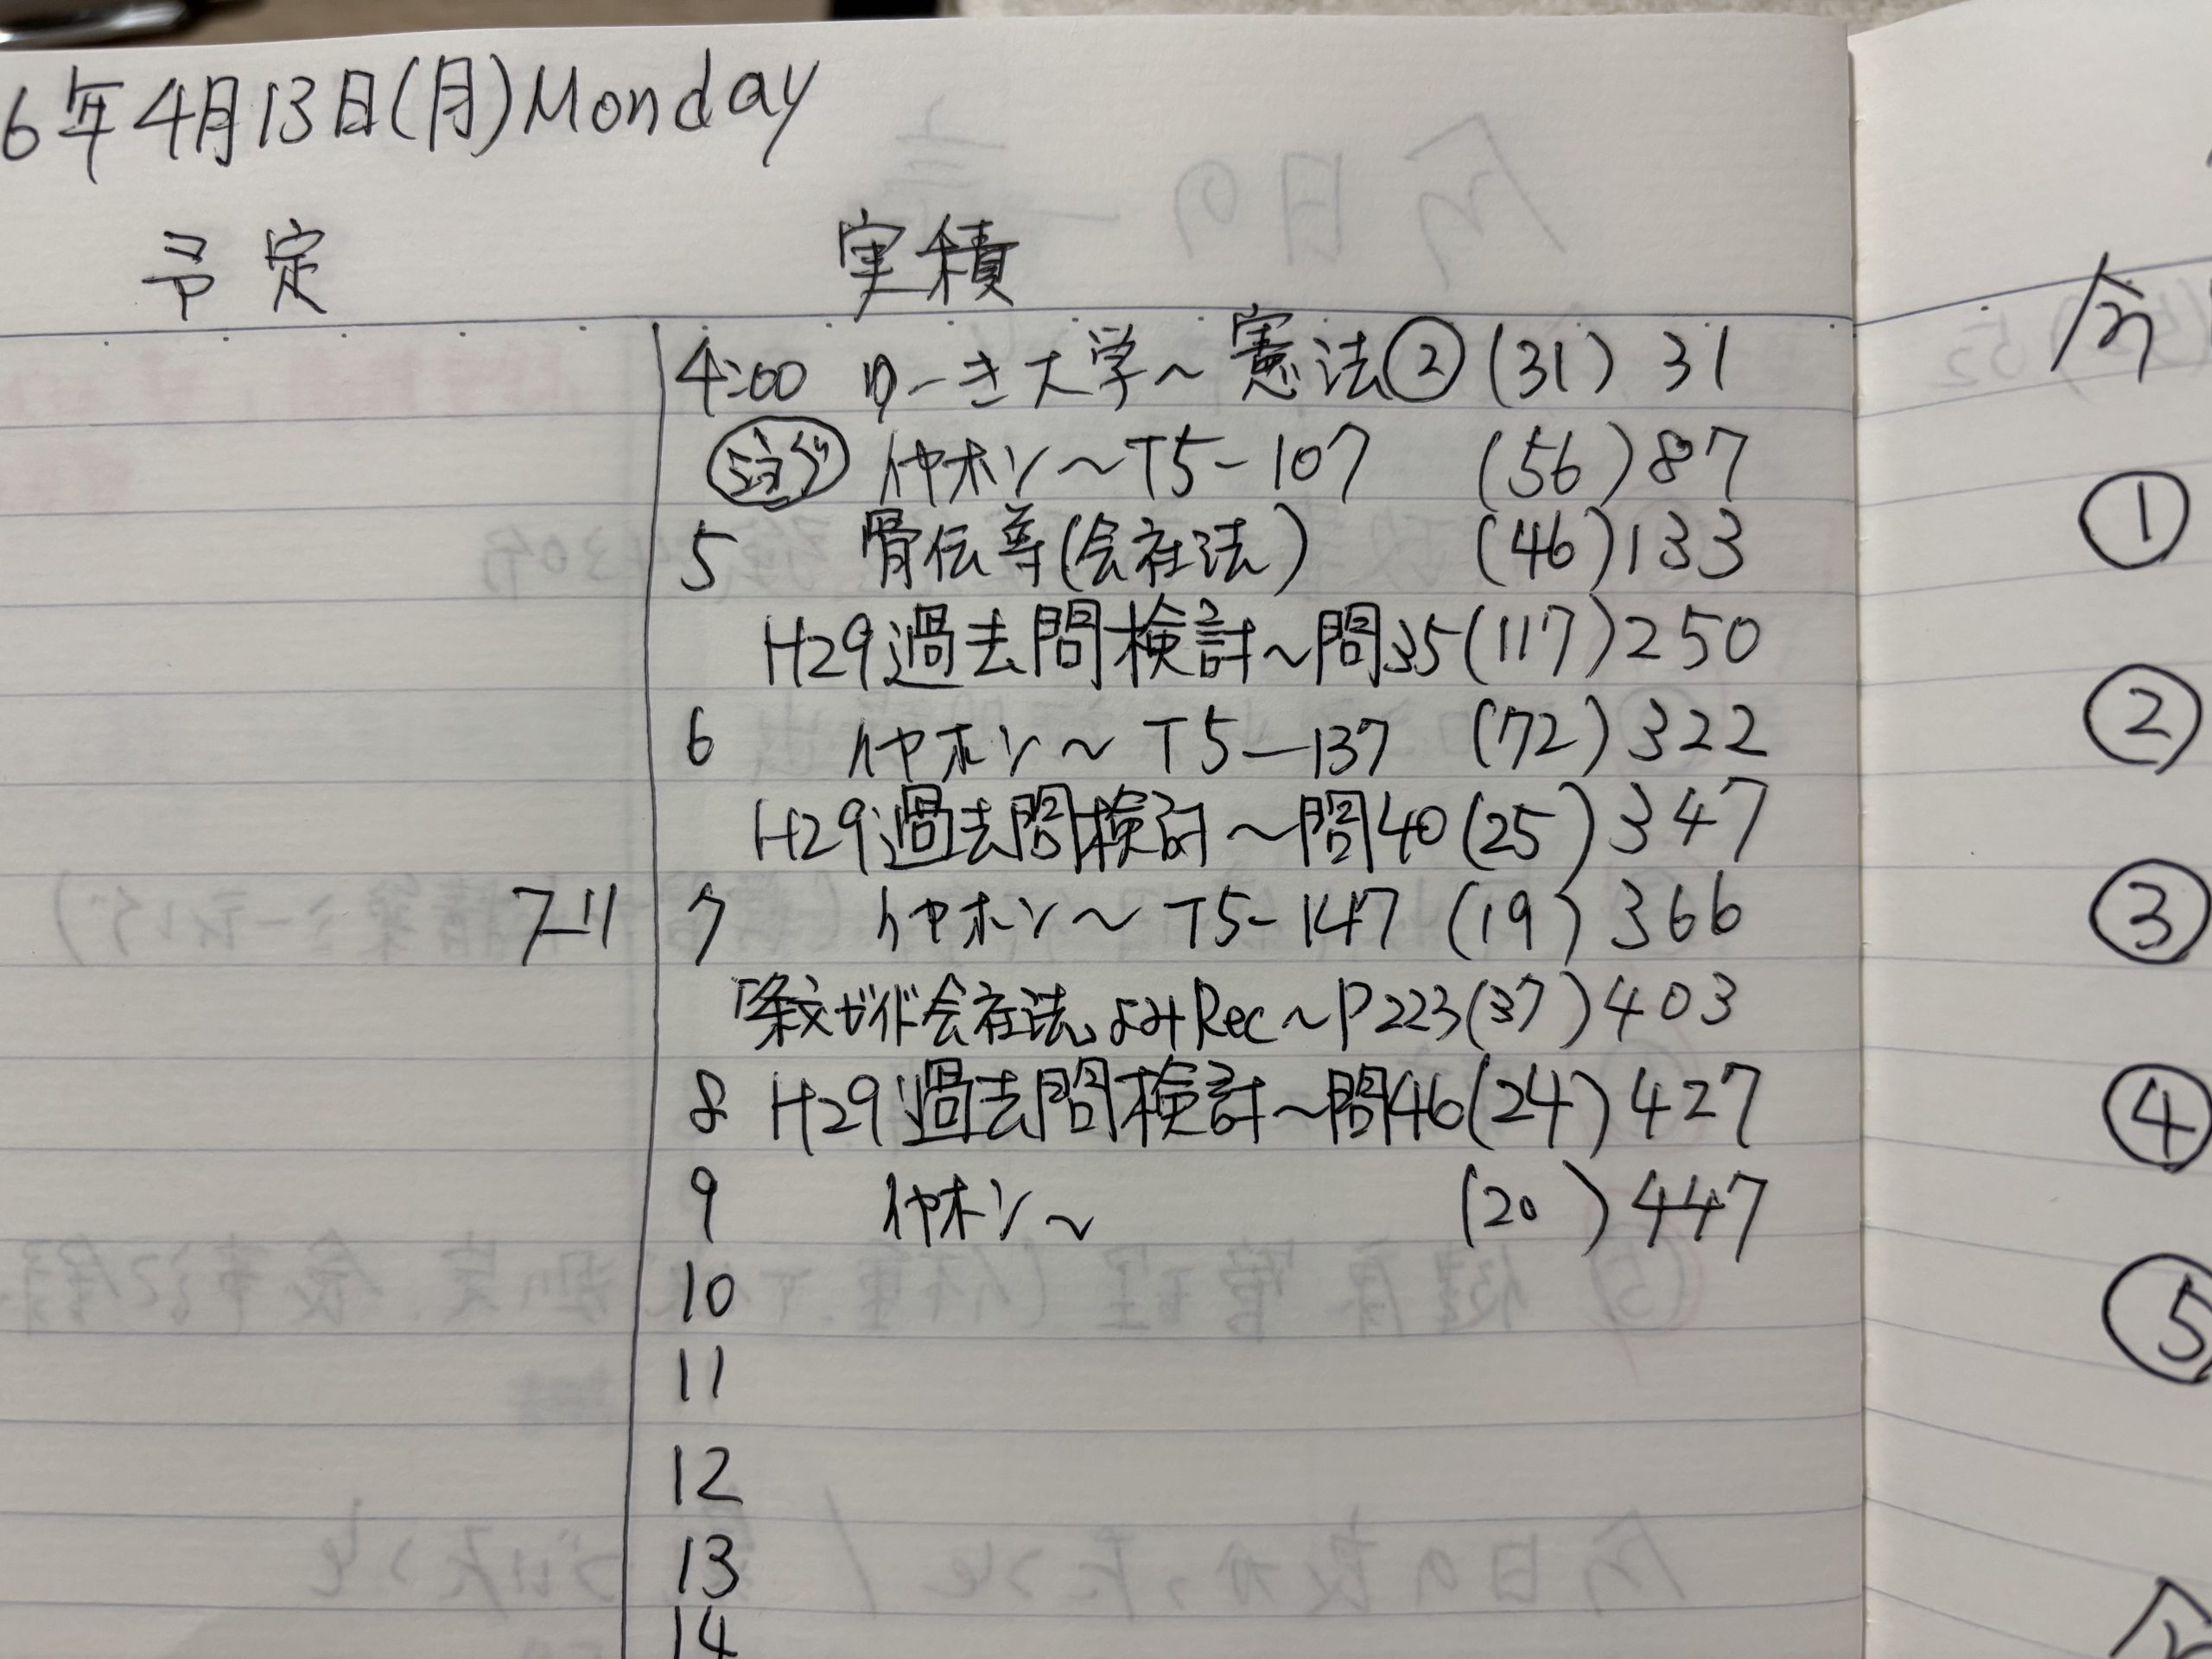 6年4月13日(月)Monday
予定 実積
4:00 ゆーき大学～憲法② (31) 31
イヤホン～T5-107 (56) 87
5 骨伝導(会社法) (46) 133
H29過去問検討～問35 (117) 250
6 イヤホン～T5-137 (72) 322
H29過去問検討～問40 (25) 347
7 イヤホン～T5-147 (19) 366
「条文ガイド会社法」よみRec～P223 (37) 403
8 H29過去問検討～問46 (24) 427
9 イヤホン～ (20) 447
10
11
12
13
14
今
①
②
③
④
⑤